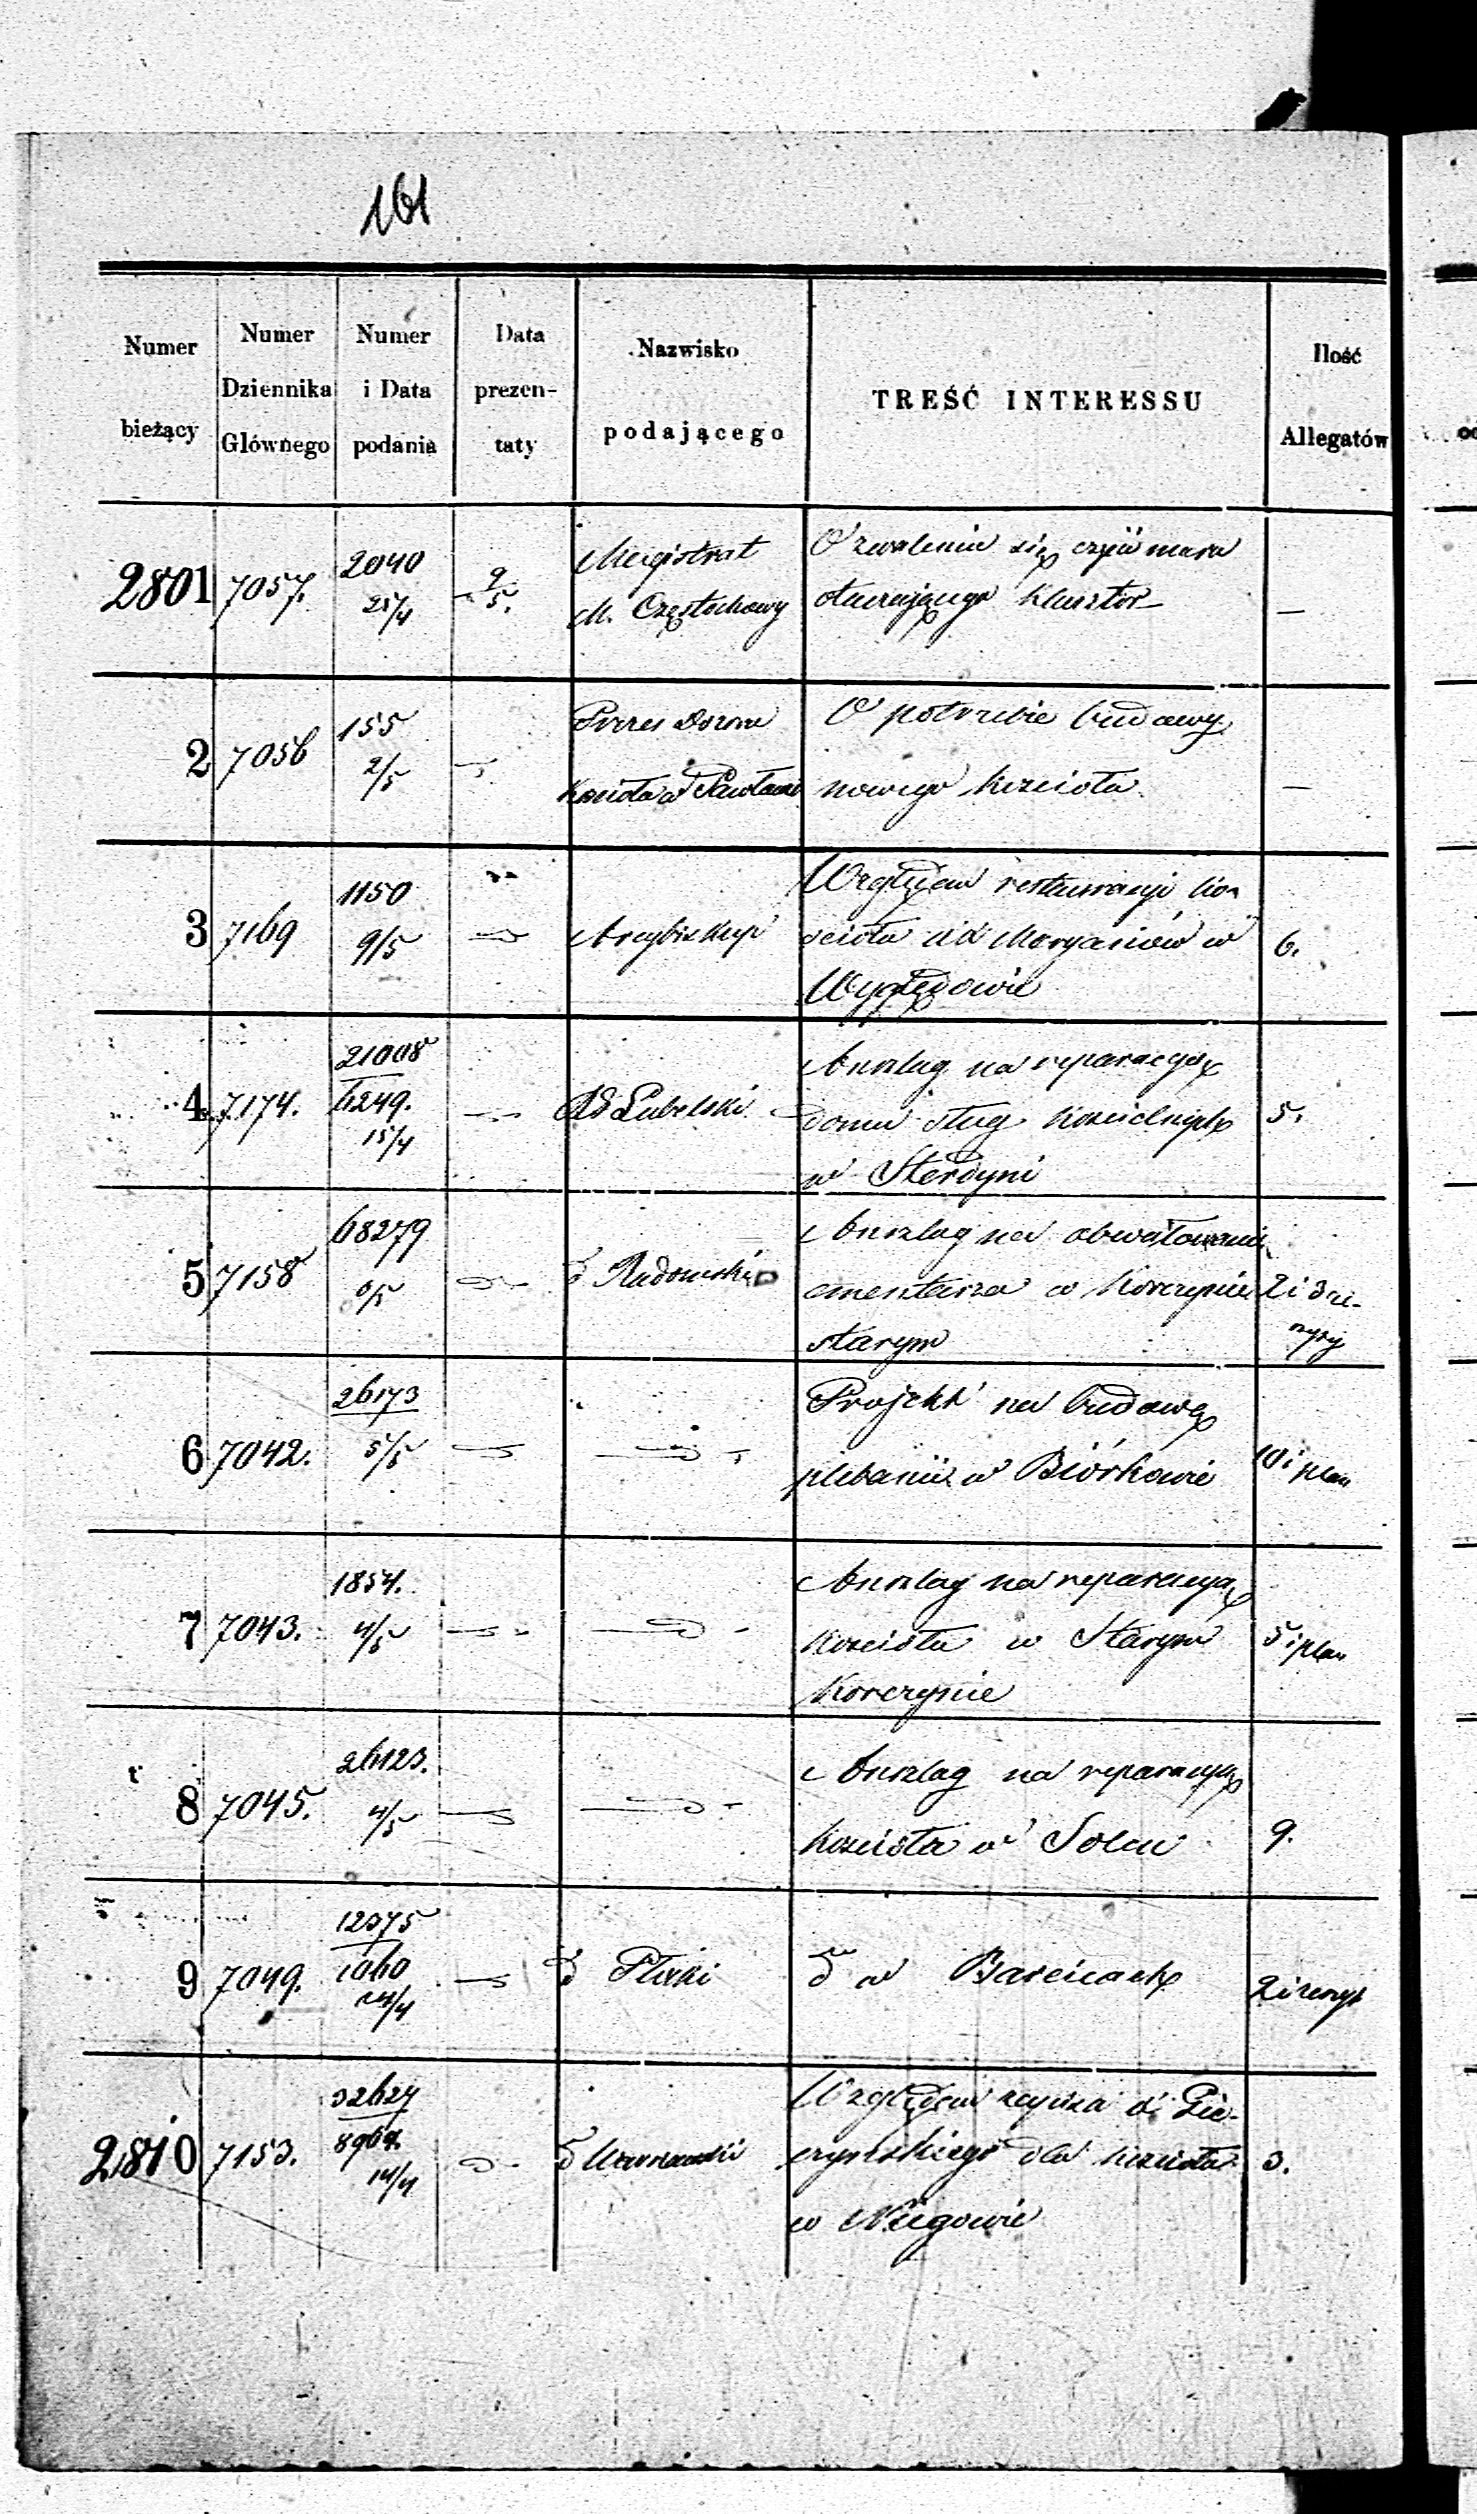 161
Numer bieżący
Numer Dziennika Głównego
Numer i Data podania
Data prezentaty
Nazwisko podającego
TREŚĆ INTERESSU
Ilość Allegatów
2801 7057. 2040 25/4 9/5. Magistrat M. Częstochowy
O zwaleniu się części muru
otaczającego Klasztor —
2 7056 155 2/5 Prezes Dozoru Kościoła w
O potrzebie budowy
nowego kościoła —
3 7169 1150 9/5 Arcybiskup
Względem restauracyi Ko-
ścioła XX Maryanów w 6.
4 7174. 21008 6249. 15/4 RG Lubelski
Anszlag na reparacyę
domu sług kościelnych 5.
w Sterdyni
5 7158 68279 6/5 d Radomski
Anszlag na obwałowanie
cmentarza w Korczynie 2 i 3 ze-
starym szyty
6 7042. 26173 5/5
Projekt na budowę
plebanii w Biórkowie 10 i plan
7 7043. 1854. 4/5
Anszlag na reparacyę
kościoła w Starym 5 i plan
Korczynie
8 7045. 26123. 4/5
Anszlag na reparacyę
kościoła w Solcu 9.
9 7049. 12375 1060 24/4 d Płocki
d w Barcicach 2 i zeszyt
2810 7153. 32627 8967. 14/4 d Warszawski
Względem zapisu
dla kościoła 3.
w Niegowie